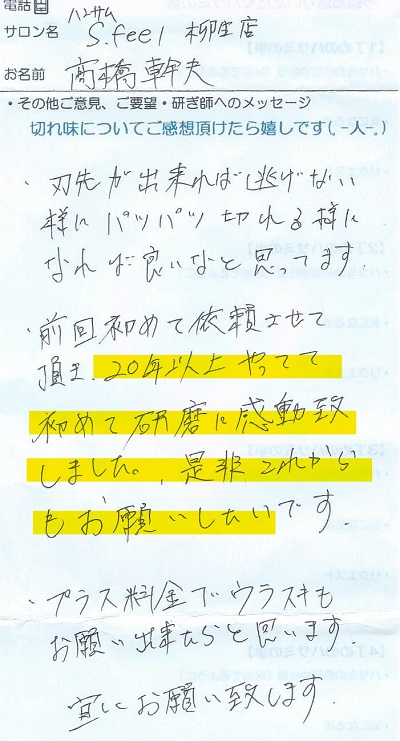 電話
ハンサム
サロン名 S.feel 柳生店
お名前 高橋幹夫
・その他ご意見、ご要望・研ぎ師へのメッセージ
切れ味についてご感想頂けたら嬉しです(｡-人-｡)
・刃先が出来れば逃げない
様にパツパツ切れる様に
なれば良いなと思ってます.
・前回初めて依頼させて
頂き、20年以上やってて
初めて研磨に感動致
しました。, 是非これから
もお願いしたいです
・プラス料金でウラスキも
お願い出来たらと思います.
宜しくお願い致します.